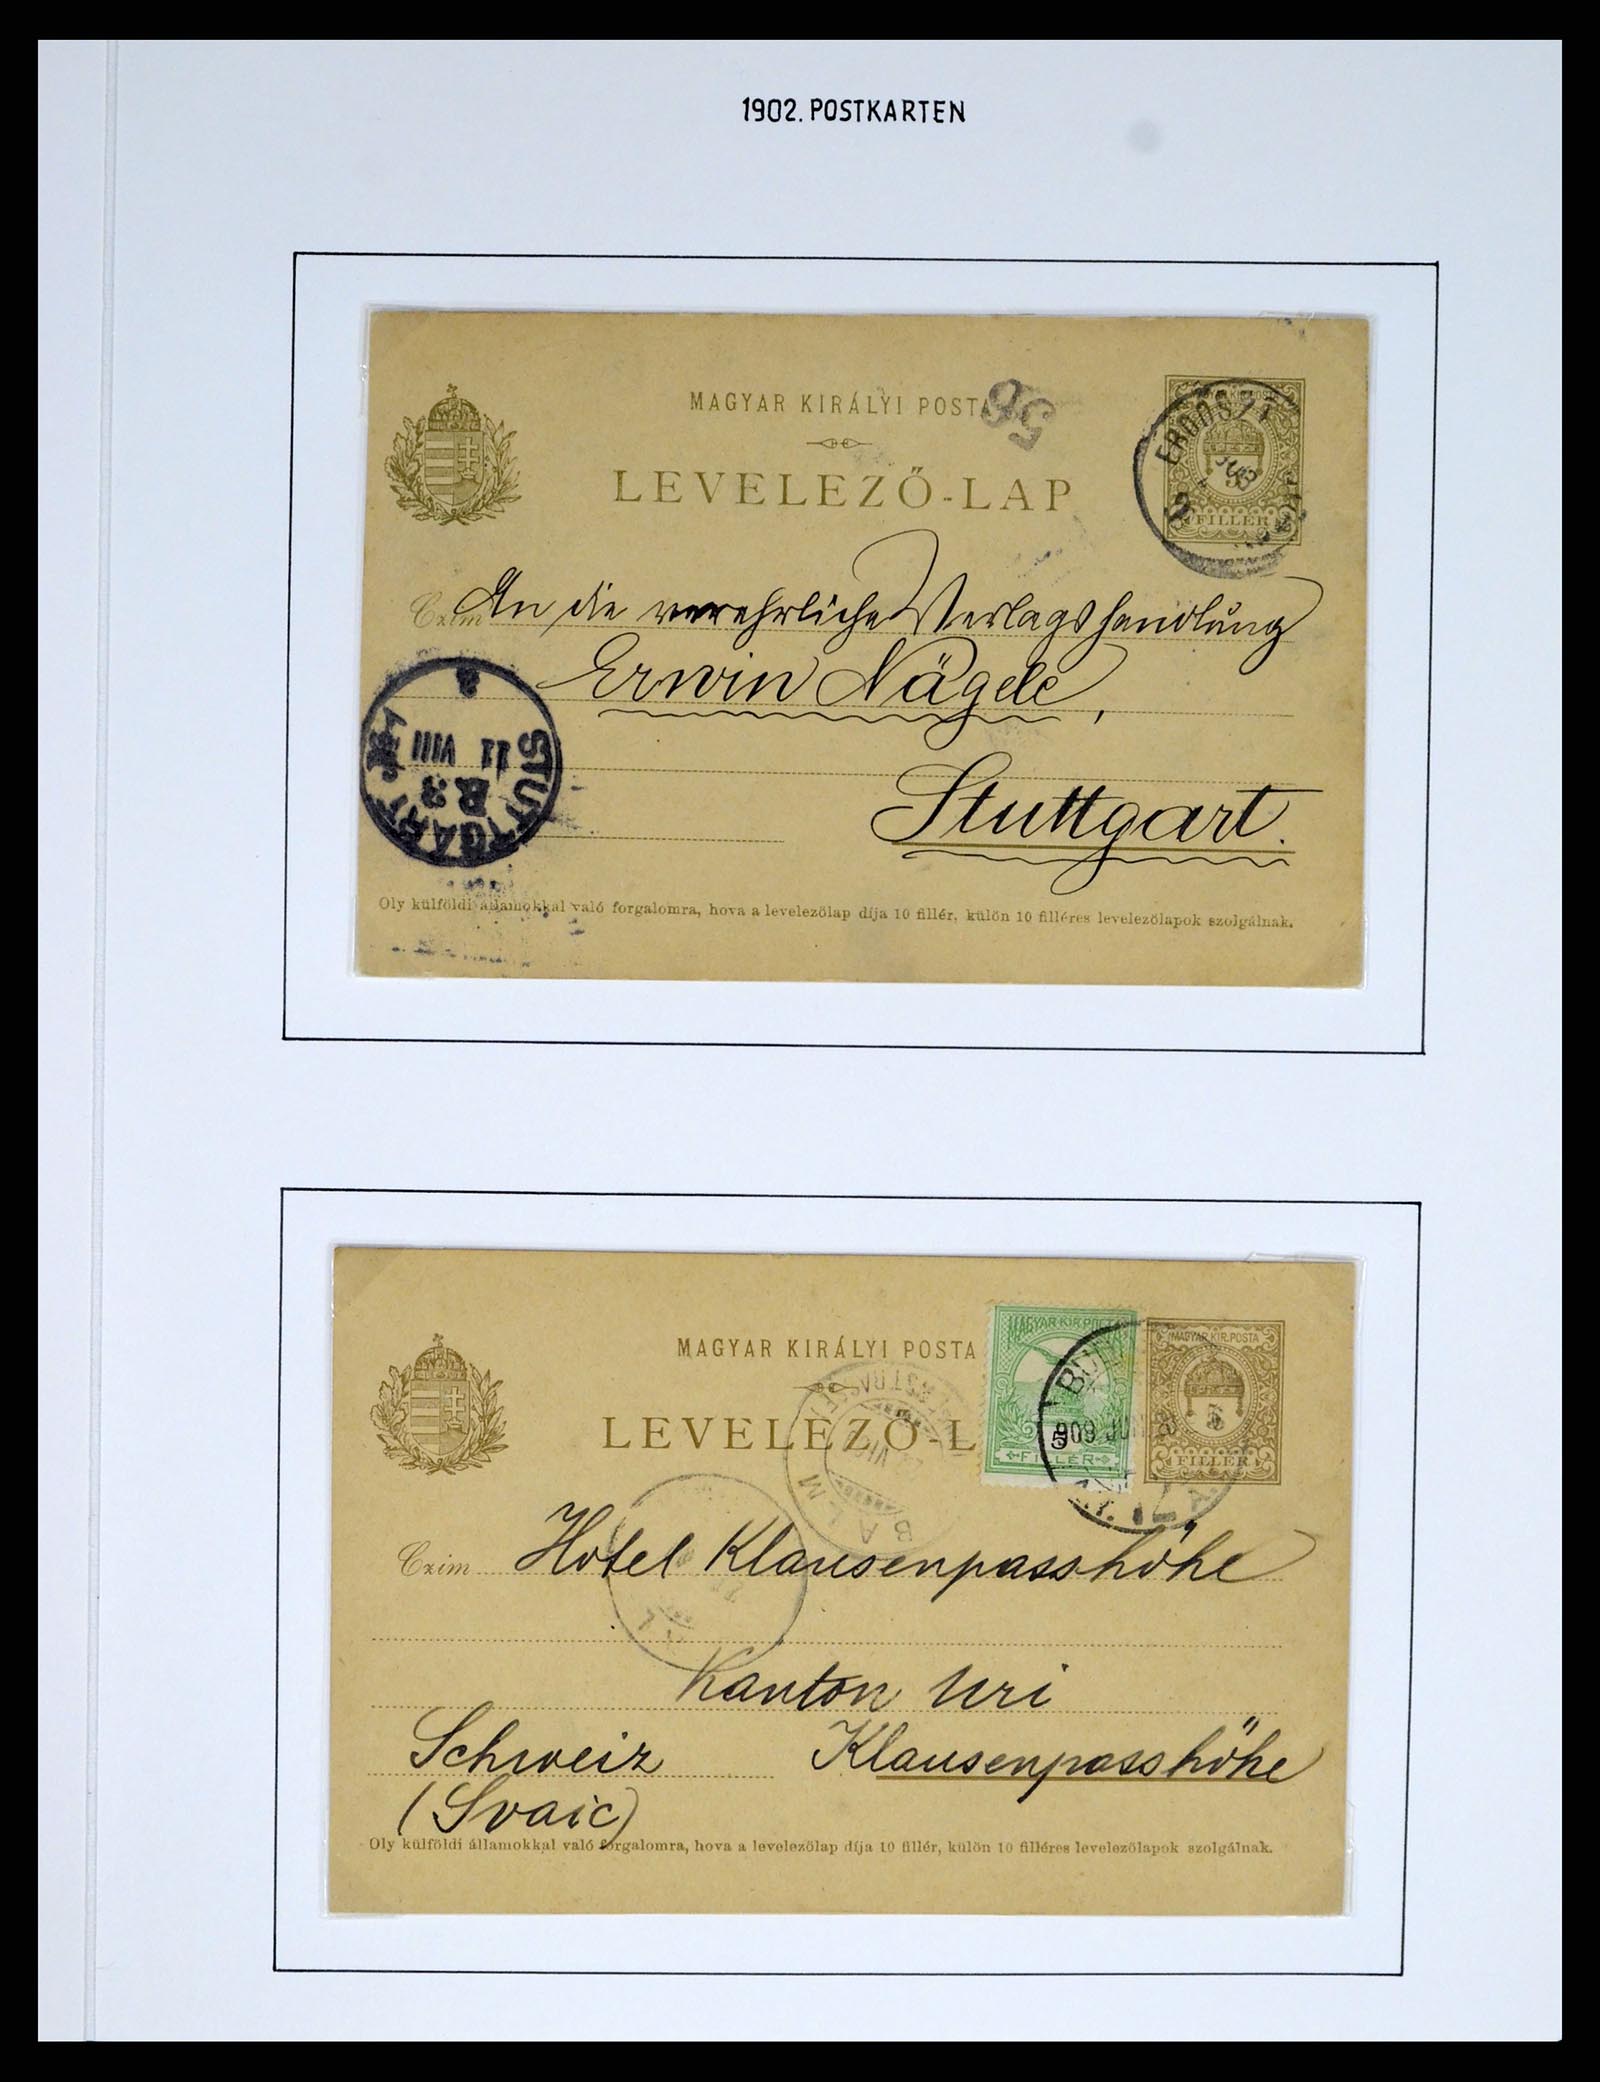 1902. POSTKARTEN
MAGYAR KIRÁLYI POSTA
56
LEVELEZŐ-LAP
FILLÉR
Czim An die verehrliche Verlagshandlung
Erwin Nägele,
STUTTGART
11 VIII
Stuttgart.
Oly külföldi államokkal való forgalomra, hova a levelezőlap díja 10 fillér, külön 10 filléres levelezőlapok szolgálnak.
MAGYAR KIRÁLYI POSTA
MAGYAR KIR. POSTA
MAGYAR KIR. POSTA
LEVELEZŐ-L
5
909 JUN
5
FILLÉR
FILLÉR
BALM
Czim Hotel Klausenpasshöhe
Kanton Uri
Schweiz Klausenpasshöhe
(Svaic)
Oly külföldi államokkal való forgalomra, hova a levelezőlap díja 10 fillér, külön 10 filléres levelezőlapok szolgálnak.